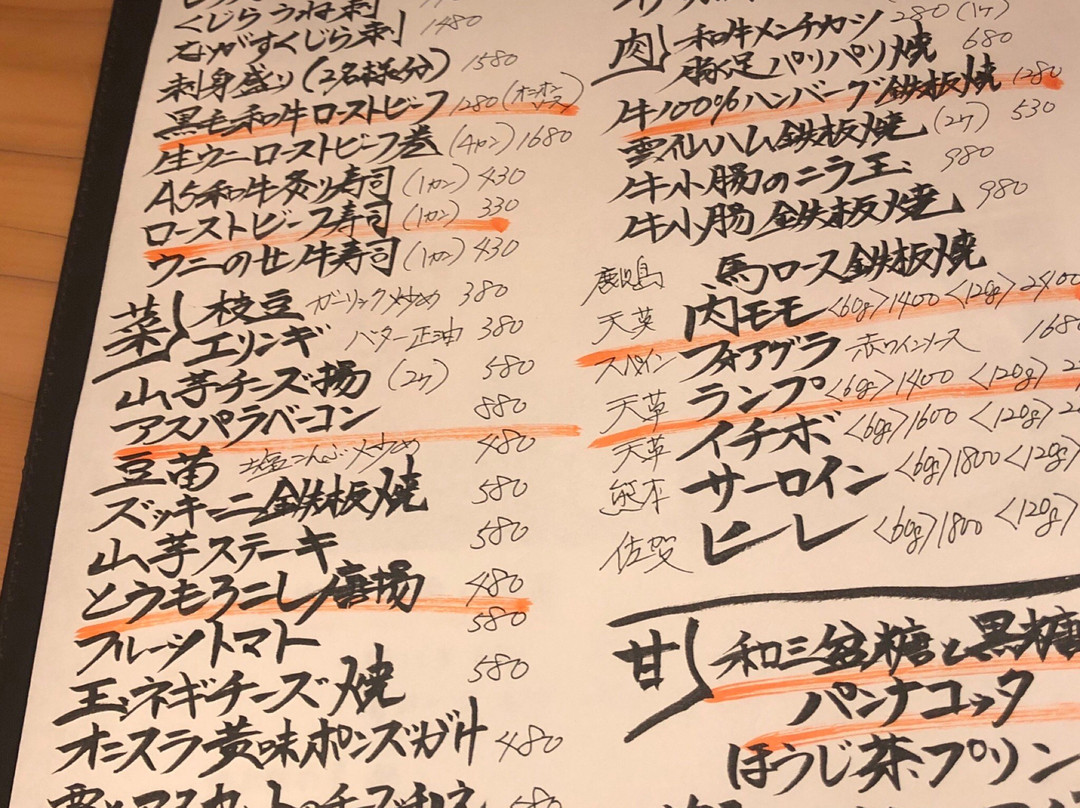 くじらうね刺
ながすくじら刺 1480
刺身盛り(2名様分) 1580
黒毛和牛ローストビーフ 1280(オニオンソース)
生ウニローストビーフ巻(4カン)1680
A5和牛炙り寿司(1カン)430
ローストビーフ寿司(1カン)330
ウニのせ牛寿司(1カン)430
菜 枝豆 ガーリック炒め 380
エリンギ バター正油 380
山芋チーズ揚(2ケ) 580
アスパラベーコン 880
豆苗 塩こんぶ炒め 480
ズッキーニ鉄板焼 580
山芋ステーキ 580
とうもろこし唐揚 480
フルーツトマト 580
玉ネギチーズ焼 580
オニスラ黄味ポンズガケ 480
肉 和牛メンチカツ 280(1ケ)
豚足パリパリ焼 680
牛100%ハンバーグ鉄板焼 1280
雲仙ハム鉄板焼(2ケ) 530
牛小腸のニラ玉 980
牛小腸鉄板焼 980
鹿児島 馬ロース鉄板焼
天草 内モモ<60g>1400<120g>2400
スペイン フォアグラ 赤ワインソース 1680
天草 ランプ<60g>1400<120g>
天草 イチボ<60g>1600<120g>
熊本 サーロイン<60g>1800<120g>
佐賀 ヒレ<60g>1800<120g>
甘 和三盆糖と黒糖
パンナコッタ
ほうじ茶プリン